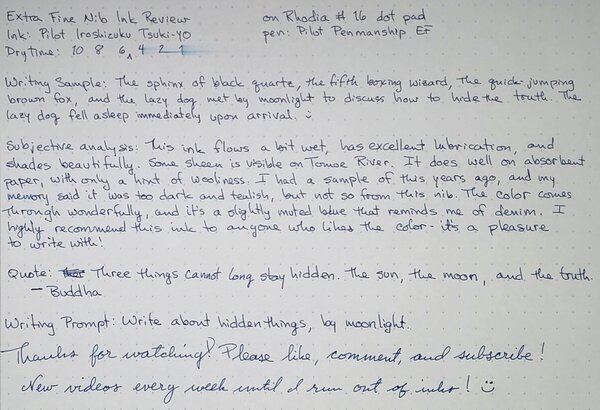 Extra Fine Nib Ink Review on Rhodia #16 dot pad
Ink: Pilot Iroshizuku Tsuki-yo pen: Pilot Penmanship EF
Dry time: 10 8 6 4 2 1
Writing Sample: The sphinx of black quartz, the fifth boxing wizard, the quick-jumping
brown fox, and the lazy dog met by moonlight to discuss how to hide the truth. The
lazy dog fell asleep immediately upon arrival. :)
Subjective analysis: This ink flows a bit wet, has excellent lubrication, and
shades beautifully. Some sheen is visible on Tomoe River. It does well on absorbent
paper, with only a hint of wooliness. I had a sample of this years ago, and my
memory said it was too dark and tealish, but not so from this nib. The color comes
through wonderfully, and it's a slightly muted blue that reminds me of denim. I
highly recommend this ink to anyone who likes the color - it's a pleasure
to write with!
Quote: Three things cannot long stay hidden. The sun, the moon, and the truth.
- Buddha
Writing Prompt: Write about hidden things, by moonlight.
Thanks for watching! Please like, comment, and subscribe!
New videos every week until I run out of inks! :)